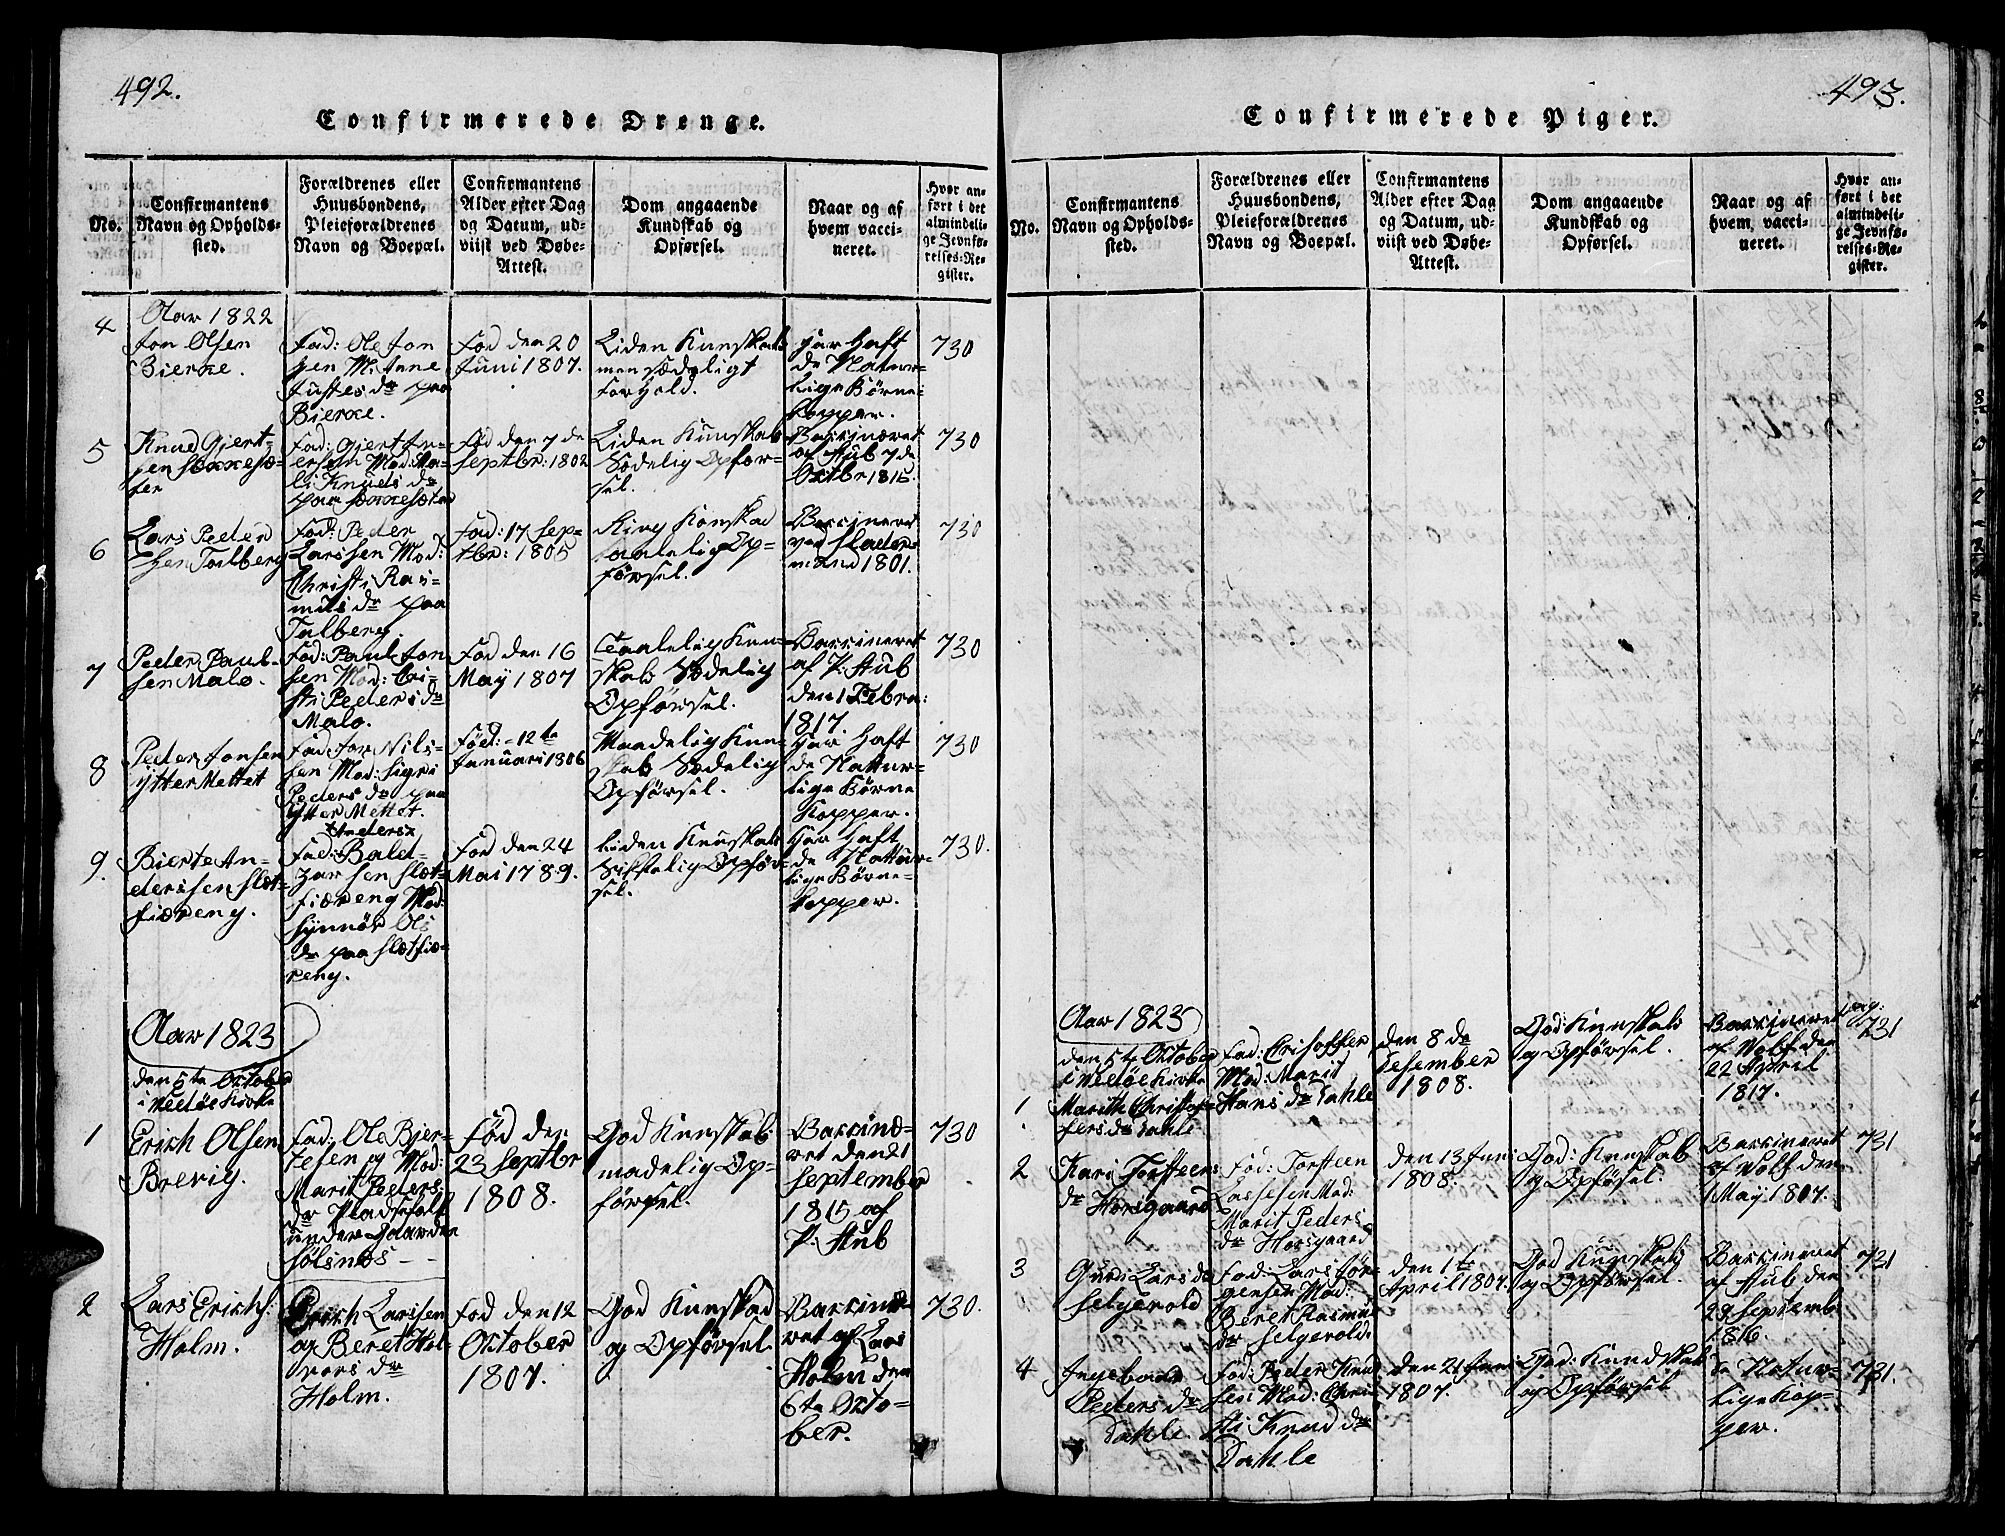 492.
Confirmerede Drenge.
No.
Confirmantens
Navn og Opholds-
sted.
Forældrenes eller
Huusbondens,
Pleieforældrenes
Navn og Boepæl.
Confirmantens
Alder efter Dag
og Datum, ud-
viist ved Døbe-
Attest.
Dom angaaende
Kundskab og
Opførsel.
Naar og af
hvem vacci-
neret.
Hvor an-
ført i det
almindeli-
ge Jevnfø-
relses-Re-
gister.
Aar 1822
4
Jon Olsen
Bierke.
Fad: Ole Jon
sen M: Anne
Justes dr paa
Bierke.
Fød den 20
Juni 1807.
Liden Kunskab
men sædeligt
Forhold.
har haft
de Natur-
lige Børne-
kopper.
730
5
Knud Gjert-
sen
ter
Fad: Gjert An-
ersen Mod: Ma-
li Knuds dr
paa
Fød den 7 de
Septbr: 1802
Liden Kunskab
Sødelig Opfør-
sel.
Vaccineret
af Stub 7 de
Octbr 1815.
730
6
Lars Peder
sen Talberg
Fad: Peder
Larssen Mod:
Christi Ras-
mus dr paa
Talberg.
Fød: 17 Sep-
tbr: 1805
Ring Konskab
taalelig Op-
førsel.
Vaccinered
ved Slader-
mand 1801.
730
7
Peder Paul-
sen Malo.
Fad: Paul Jon
sen Mod: Cri-
sti Peders dr
Malo.
Fød den 16
May 1807
Taalelig Kun-
skab Sødelig
Opførsel.
Vaccineret
af P: Stub
den 1 Febra:
1817.
730
8
Peder Jonsen
ytter Mettet
Fad Jon Nils-
sen Mod: Sigri
Peders dr paa
ytter Mettet.
Fød: 12 te
Januari 1806
Maadelig Kun-
skab Sødelig
Opførsel.
har haft
de Nattur-
lige Børne
Kopper.
730
9.
Bierte An-
derssen Slet-
fiæreng.
Anders
Fad: Balet-
zar sen Slet-
fiæreng Mod:
Synnør Ols
dr paa Sletfiæ-
reng.
Fød den 24
Mai 1789.
Liden Kunskab
Sikkelig Opfør-
sel.
har haft
de Nattur-
lige Børne-
kopper.
730.
Aar 1823
den 5te October
i Veeløe Kirke
1
Erich Olsen
Brevig.
Fad: Ole Bjer-
tesen og Mod:
Marit Peders
dr Pladsefolk
under Gaarden
Sølsnæs -
Fød den
23 Septbr
1808.
God Kunskab
madelig Op-
førsel.
Vaccine-
ret den 21
September
1815 af
P: Stub
730
2
Lars Erichs:
Holm.
Erich Larssen
og Beret Hal-
vors dr
Holm.
Fød den 12
October
1807.
God Kunskab
og Opførsel.
Vaccine-
ret af Lars
Holm den
6te Octo-
ber.
730.
493.
Confirmerede Piger.
No.
Confirmantens
Navn og Opholds-
sted.
Forældrenes eller
Huusbondens,
Pleieforældrenes
Navn og Boepæl.
Confirmantens
Alder efter Dag
og Datum, ud-
viist ved Døbe-
Attest.
Dom angaaende
Kundskab og
Opførsel.
Naar og af
hvem vacci-
neret.
Hvor an-
ført i det
almindeli-
ge Jevnfø-
relses-Re-
gister.
Aar 1823
den 5te October
i Veeløe Kirke
1
Marith Christof-
fers dr Dahle
Fad: Crisoffer
Mod: Marit
Hans dr Dahle
den 8 de
Desember
1808.
God: Kunskab
og Opførsel.
Vaccineret
af Wolf den
22 April
1817.
pag:
731
2
Kari Torsteens
dr Horsgaard
Fad: Torsteen
Lassesen Mod:
Marit Peders
dr Horsgaard
den 13 Juni
1808.
God: Kunskab
og Opførsel.
Vaccineret
af Wolf den
1 May 1807.
731
3
Guri Lars dr
Selgevold
Fad: Lars Jør-
gensen Mod:
Beret Rasmus
dr Selgevold.
den 1 te
April 1807.
God Kunskab
og Opførsel.
Vaccineret
af Stub den
29 Septemb
1816.
731
4
Ingeboer
Peders dr
Dahle.
Fad: Peder Knud
sen Mod: Chri
sti Knud dr
Dahle
den 21 Juni
1807.
God: Kundskab
og Opførsel
de Natur-
lige Kop-
per.
731.